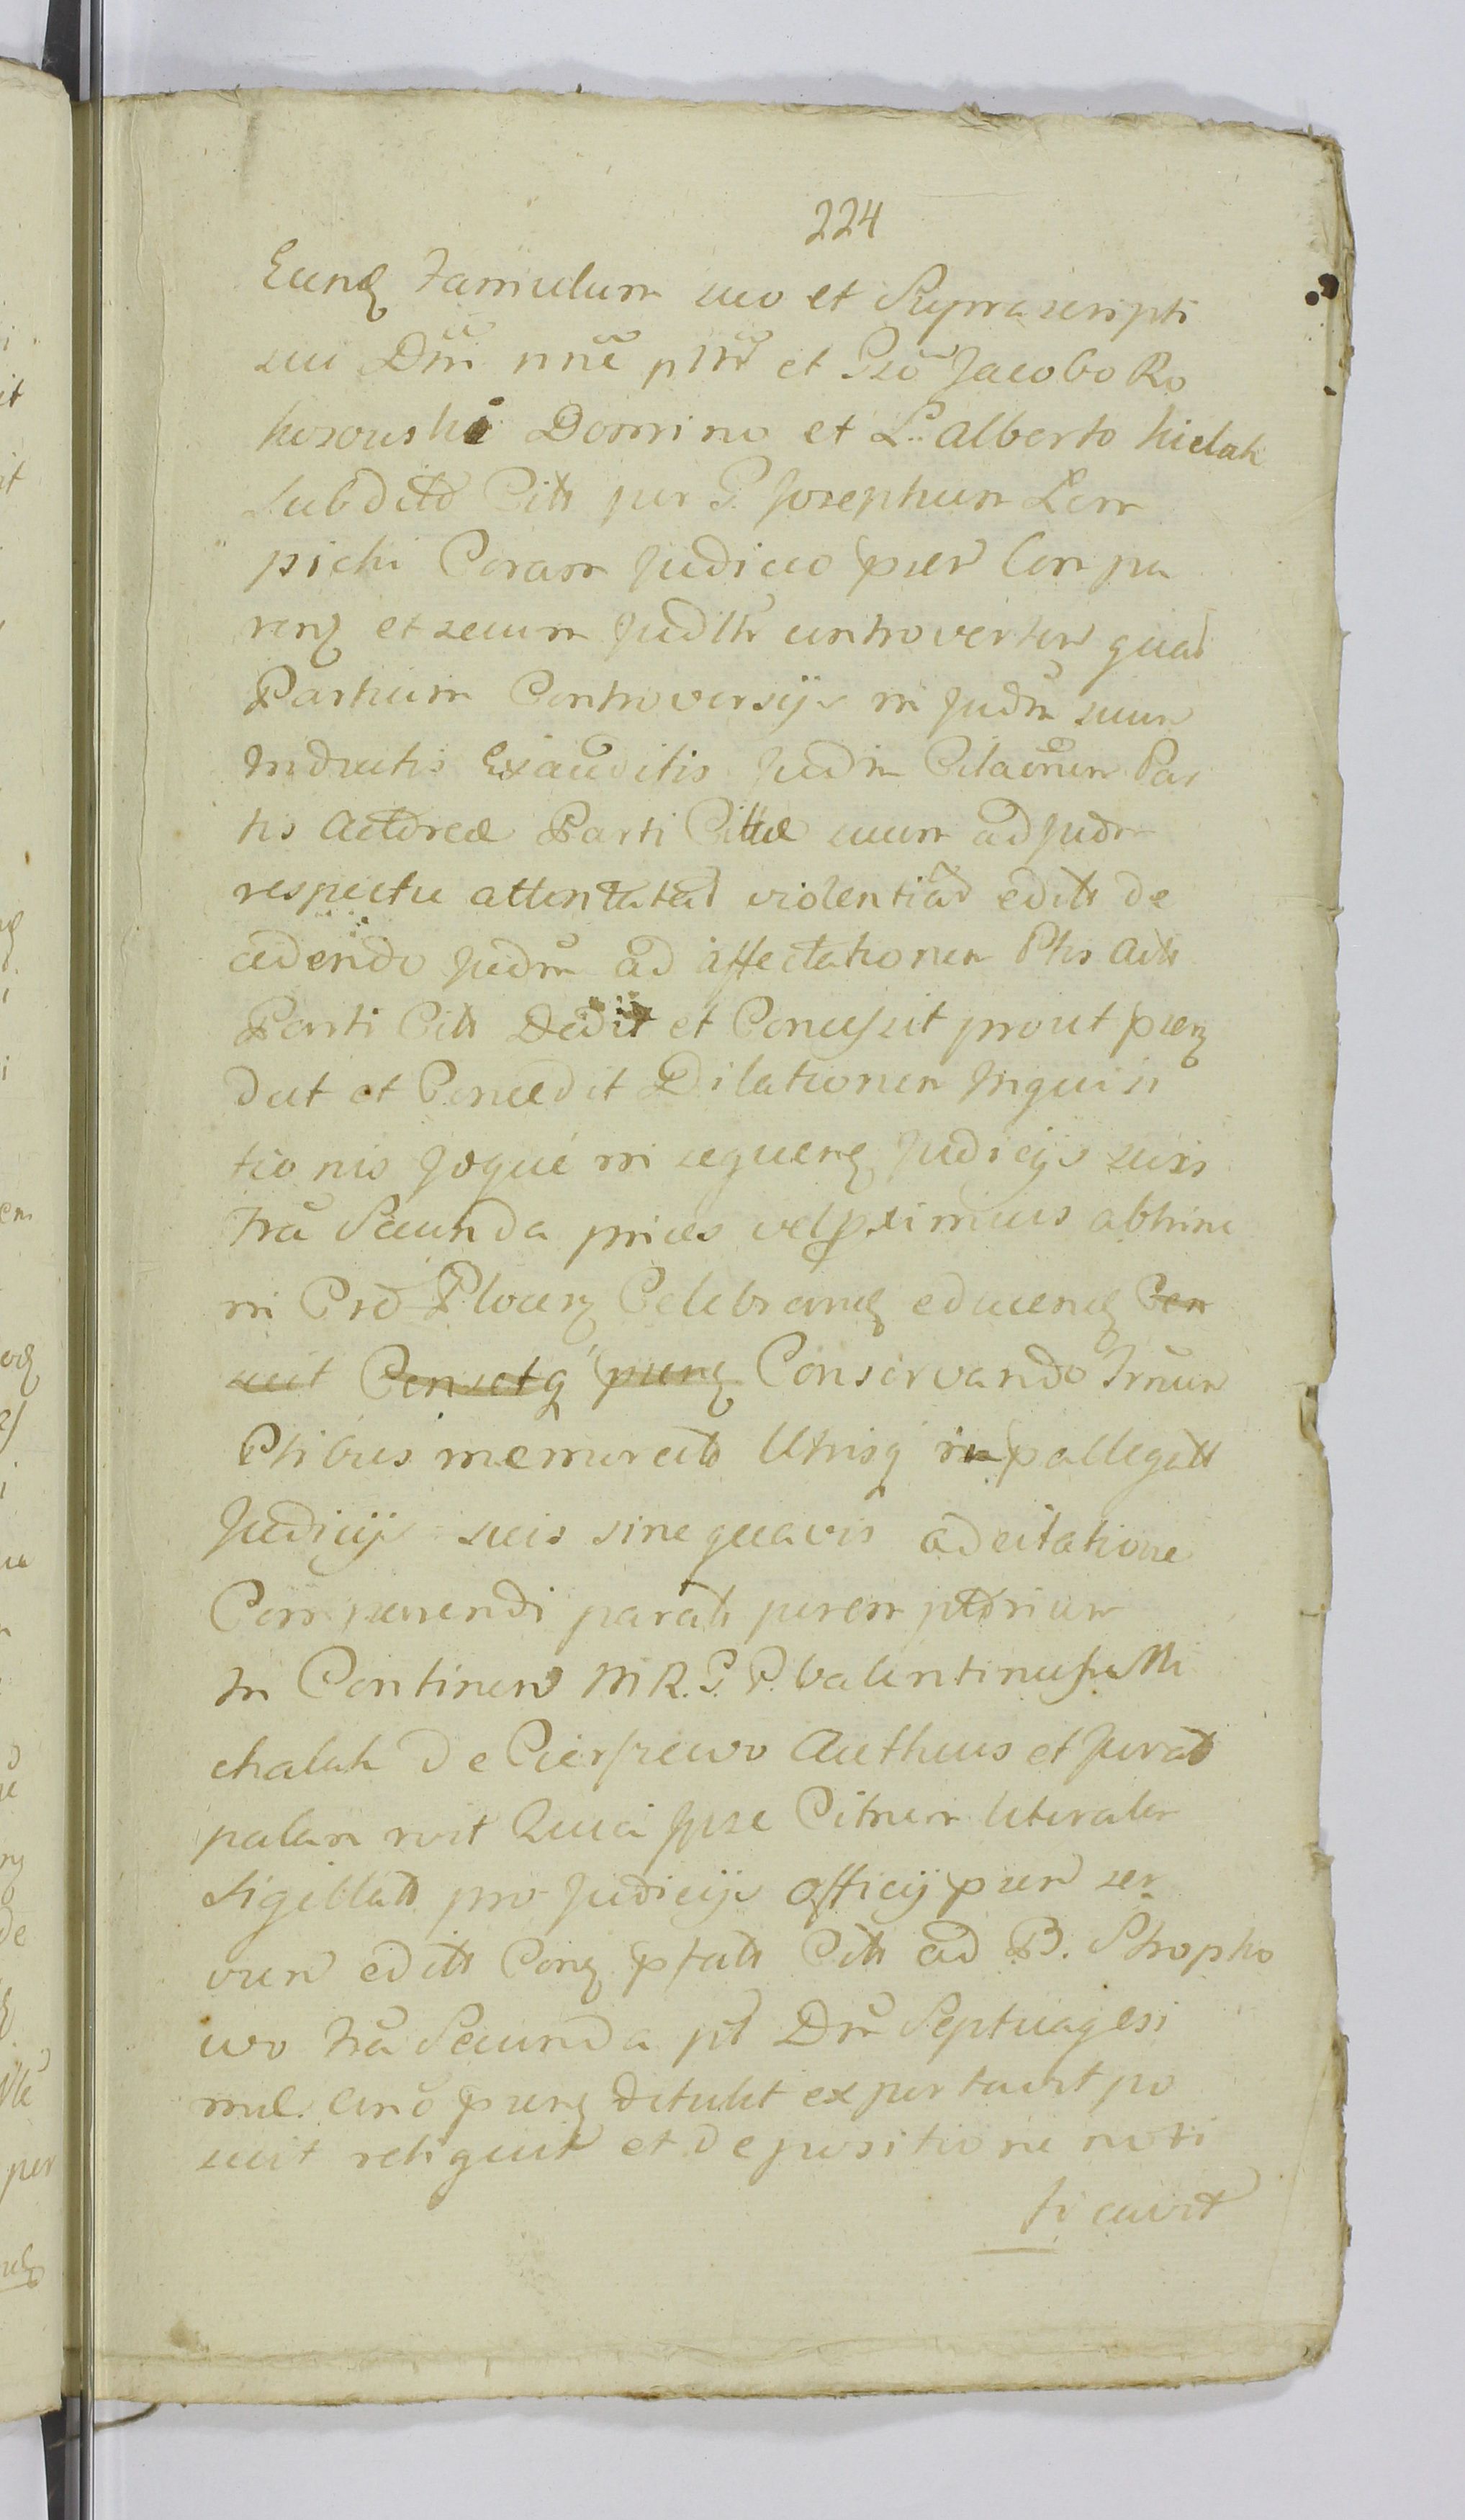 224
Eunđ Famulum suo et Supra scripti
sui Dni nnē plrd et Gsō Jacobo Ro
kosouski Domino et L. Alberto kielak
Subdito Citt per G. Josephum Lem
picki Coram Judicio psen Com pa
renz et secum Judltr controverten quas
Partium Controversijs in Judm suum
Inductis Exauditis Judm Citaōnem Par
tis Actoreæ Parti Cittæ suum ad Judm
respectu attentatas violentiās editt de
cidendo Judm ad affectationem Ptis Actt
Parti Citt Dedit et Concessit prout psenz
dat et Concedit Dilationem Inquisi
tionis Joque in sequenz Judicijs suis
fra Secunda prices vel pximius abhinc
in Prd Plocenz Celebranđ educenđ Cen
suit Censetq psenz Conservando Trnum
Ptibus memoratis Utrisq in pallegatt
Judicijs suis sine quavis adcitatione
Comparendi paratt peremptorium
In Continen M R. G. P. Valentinus Mi
chalak De Cierpiewo Authus et Jurat
palam rvit Quia Ipse Citnem literalem
Sigillatt pro Judicijs officij psen ser
vien editt Conz pfatt Citt ad B. Stropko
wo fra Secunda pt Dm Septuagesi
mæ. Anō psenz detulit exportavit po
suit reliquit et de positione noti
ficavit